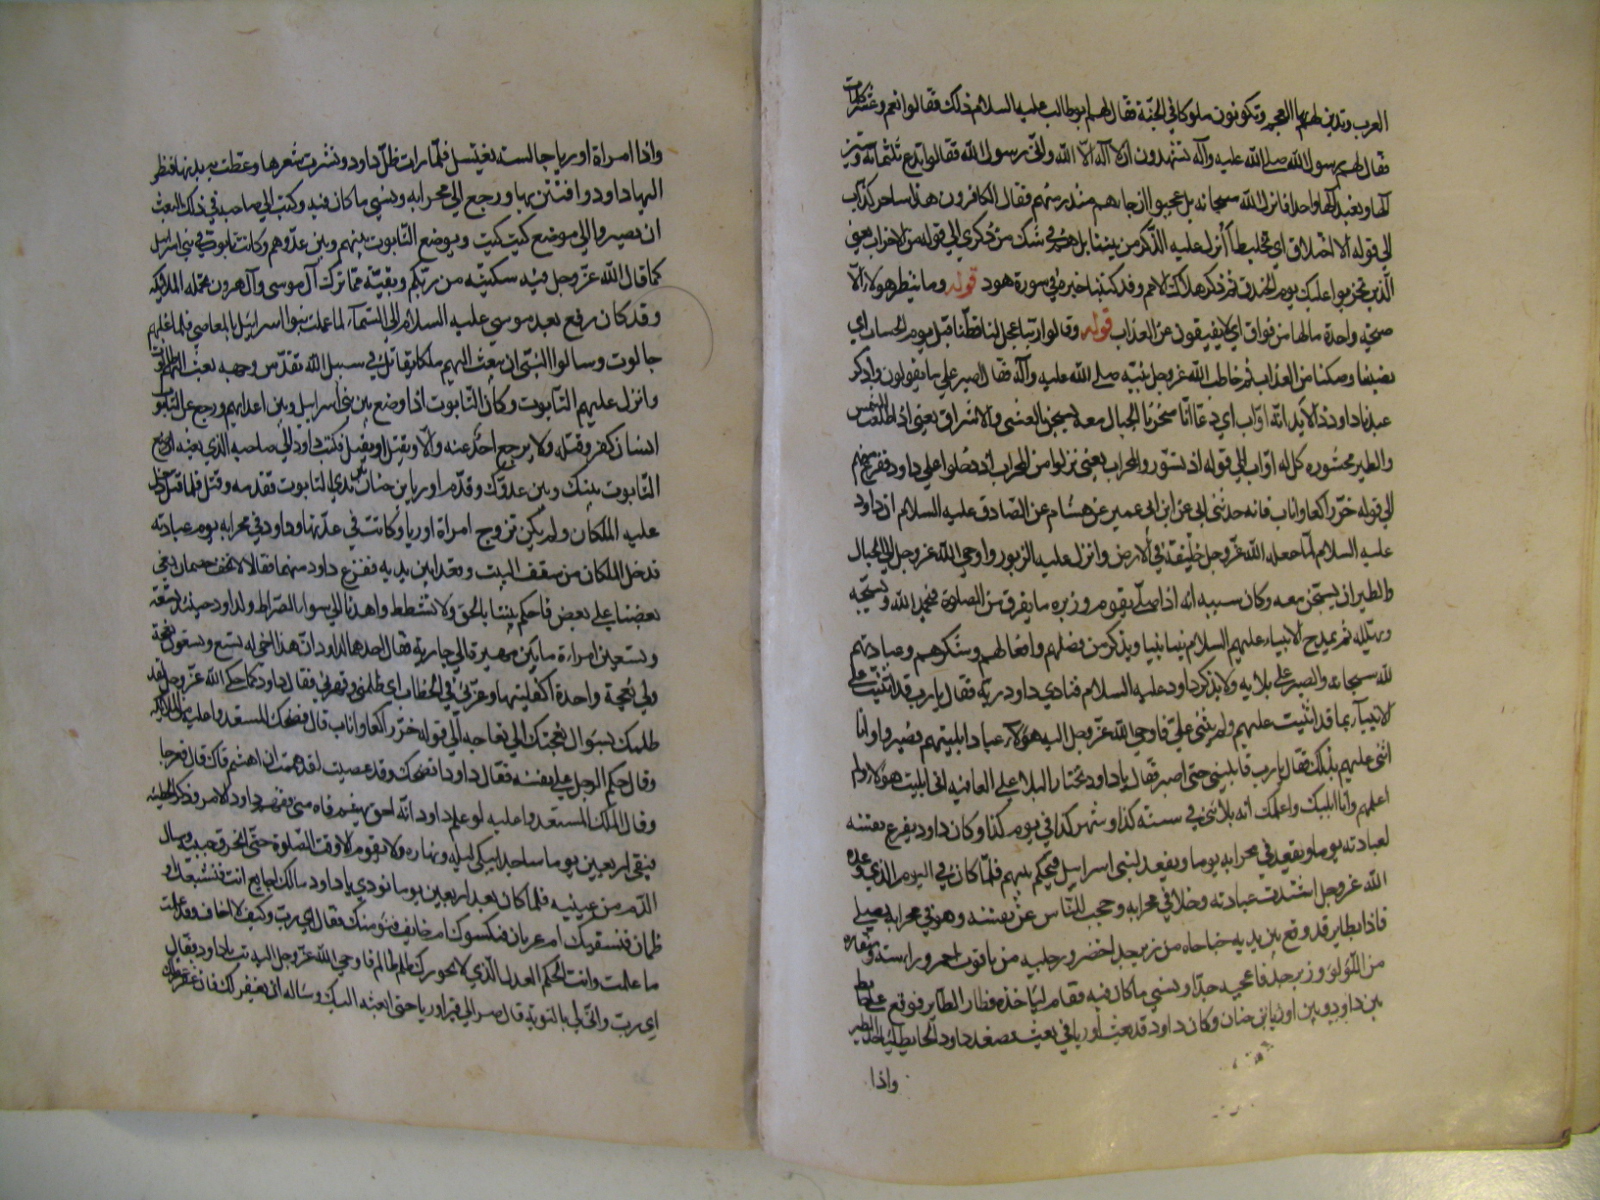 العرب وتدين لهم بها العجم وتكونون ملوكا في الجنة فقال لهم ابو طالب عليه السلام ذلك فقالوا نعم وعشر كلمات
فقال لهم رسول الله صلى الله عليه وآله تشهدون ان لا اله الا الله واني رسول الله فقالوا ندع ثلثمائة وستين
آلها ونعبد آلها واحدا فانزل الله سبحانه بل عجبوا ان جاءهم منذر منهم فقال الكافرون هذا ساحر كذاب
الي قوله الا اختلاق اي تخليط أأنزل عليه الذكر من بيننا بل هم في شك من ذكري الي قوله من الاحزاب يعني
الذين تحزبوا عليك يوم الخندق ثم ذكر هلاك الامم وقد كتبنا خبرهم في سورة هود قوله وما ينظر هولاء الا
صيحة واحدة مالها من فواق اي لا يفيقون عن العذاب قوله وقالوا ربنا عجل لنا قطنا قبل يوم الحساب اي
نصيبنا وصكنا من العذاب ثم خاطب الله عز وجل نبيه صلي الله عليه وآله فقال اصبر علي ما يقولون واذكر
عبدنا داود ذا الايد انه اواب اي دعا انا سخرنا الجبال معه يسبحن بالعشي والاشراق يعني اذا طلعت الشمس
والطير محشورة كل له اواب الي قوله اذ تسوروا المحراب يعني نزلوا من المحراب اذ دخلوا علي داود ففزع منهم
الي قوله خر راكعا واناب فانه حدثني ابي عن ابن ابي عمير عن هشام عن الصادق عليه السلام ان داود
عليه السلام لما جعله الله عز وجل خليفة في الارض وانزل عليه الزبور واوحي الله عز وجل الي الجبال
والطير ان يسبحن معه وكان سببه انه اذا صلي يقوم وزيره ما يفرق من الصلوة فيحمد الله ويسبحه
ويهلله ثم يمدح الانبياء عليهم السلام نبيا نبيا ويذكر من فضلهم وافعالهم وشكرهم وعبادتهم
لله سبحانه والصبر علي بلايه ولا يذكر داود عليه السلام فنادي داود ربه فقال يا رب قد اثنيت علي
الانبياء بما قد اثنيت عليهم ولم تثني علي فاوحي الله عز وجل اليه هولاء عبادا بليتهم فصبروا وانا
اثني عليهم بذلك فقال يا رب فابليني حتي اصبر فقال يا داود تختار البلاء علي العافيه اني ابليت هولاء ولم
اعلمهم وانا ابليك واعلمك انه بلائي في سنة كذا وشهر كذا في يوم كذا وكان داود يفرغ نفسه
لعبادته يوما ويقعد في محرابه يوما ويقعد لبني اسرائيل فيحكم بينهم فلما كان في اليوم الذي وعده
الله عز وجل اشتدت عبادته وخلا في محرابه وحجب للناس عن نفسه وهو في محرابه يصلي
فاذا بطاير قد وقع بين يديه جناحاه من زبرجد اخضر ورجليه من ياقوت احمر وراسه ومنقاره
من اللؤلؤ وزبرجد فاعجبه جدا ونسي ما كان فيه فقام لياخذه فطار الطاير فوقع علي حايط
بين داود وبين اوريا بن حنان وكان داود قد بعث اوريا في بعث فصعد داود الحايط لياخذ الطير
واذا
واذا امراة اوريا جالسه تغتسل فلما رات ظل داود ونشرت شعرها وغطت به بدنها فنظر
اليها داود وافتتن بها ورجع الي محرابه ونسي ما كان فيه وكتب الي صاحبه في ذلك البعث
ان يصيروا الي موضع كيت كيت ويوضع التابوت بينهم وبين عدوهم وكانت تابوت في بني اسرائيل
كما قال الله عز وجل فيه سكينه من ربكم وبقية مما ترك آل موسي وآل هرون تحمله الملايكه
وقد كان رفع بعد موسي عليه السلام الي السماء لما عملت بنوا اسرائيل بالمعاصي فلما غلبهم
جالوت وسالوا النبي ان يبعث اليهم ملكا يقاتل في سبيل الله تقدس وجهه بعث اليهم طالوت
وانزل عليهم التابوت وكان التابوت اذا وضع بين بني اسرائيل وبين اعدايهم ورجع عن التابوت
انسان كفر وقتله ولا يرجع احد عنه والا ويقتل او يقتل فكتب داود الي صاحبه الذي بعثه ان ضع
التابوت بينك وبين عدوك وقدم اوريا بن حنان بين يدي التابوت فقدمه وقتل فلما قتل دخل
عليه الملكان ولم يكن تزوج امراة اوريا وكانت في عدتها وداود في محرابه يوم عبادته
فدخل الملكان من سقف البيت وقعد ابين يديه ففزع داود منهما فقالا لا تخف خصمان بغي
بعضنا علي بعض فاحكم بيننا بالحق ولا تشطط واهدنا الي سواء الصراط ولداود حينئذ تسعة
وتسعين امراة ما بين مهيرة الي جارية فقال احدهما لداود ان هذا اخي له تسع وتسعون نعجة
ولي نعجة واحدة اكفلينها وعزني في الخطاب اي ظلمني وقهرني فقال داود كما حكي الله عز وجل لقد
ظلمك بسوال نعجتك الي نعاجه الي قوله خر راكعا واناب قال فضحك المستعدا عليه من الملايكه
وقال حكم الرجل علي نفسه فقال داود اتضحك وقد عصيت لقد هممت ان اهشم فاك قال فعرجا
وقال الملك المستعدا عليه لو علم داود انه احق بهشم فاه مني ففهم داود الامر وذكر الخطيئه
فبقي اربعين يوما ساجدا يبكي ليله ونهاره ولا يقوم الا وقت الصلوة حتي انخرق جبينه وسال
الدم من عينيه فلما كان بعد اربعين يوما نودي يا داود مالك اجايع انت فنشبعك او
ظمان فنسقيك ام عريان فنكسوك ام خايف فنومنك فقال اي رب وكيف لا اخاف وقد عملت
ما علمت وانت الحكم العدل الذي لا يجورك ظلم ظالم فاوحي الله عز وجل اليه تب يا داود فقال
اي رب واني لي بالتوبة قال صر الي قبر اوريا حتي ابعثه اليك وساله ان يغفر لك فان غفر لك